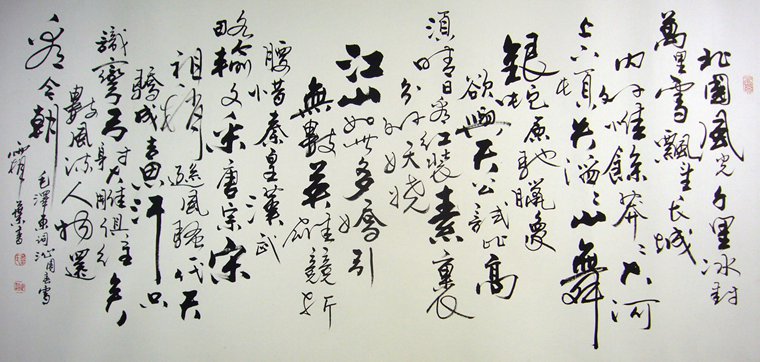 北國風光千里冰封
萬里雪飄望长城
内外惟餘莽〻大河
上下頓失滔〻山舞
銀蛇原馳臘象
欲與天公試比高
須晴日看红装素裹
分外妖嬈
江山如此多嬌引
無數英雄競折
腰惜秦皇漢武
略輸文采唐宗宋
祖稍遜風騷一代天
驕成吉思汗只
識彎弓射大雕俱往矣
數風流人物還
看今朝
毛澤東詞沁園春雪
葉書